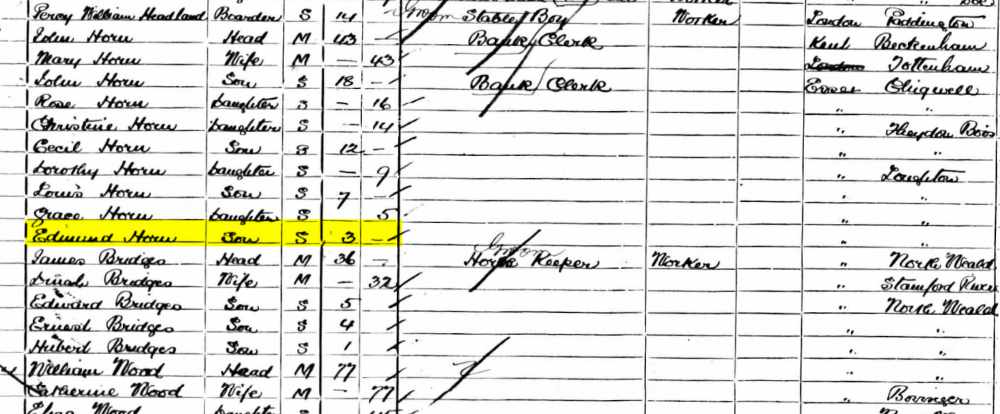 Percy William Headland Boarder S 14 Groom Stable Boy Worker London Paddington
John Horn Head M 43 — Bank Clerk Kent Beckenham
Mary Horn Wife M — 43 London Tottenham
John Horn Son S 18 — Bank Clerk Essex Chigwell
Rose Horn Daughter S — 16
Christine Horn Daughter S — 14 " Theydon Bois
Cecil Horn Son S 12 — " "
Dorothy Horn Daughter S — 9 " Loughton
Louis Horn Son S 7 — " "
Grace Horn Daughter S 5 " "
Edmund Horn Son S 3 — " "
James Bridges Head M 36 — Groom Horse Keeper Worker " North Weald
Bridges Wife M — 32 " Stamford Rivers
Edward Bridges Son S 5 " North Weald
Ernest Bridges Son S 4 " "
Hubert Bridges Son S 1 " "
William Wood Head M 77 " "
Catherine Wood Wife M — 77 "
Eliza Wood Daughter S